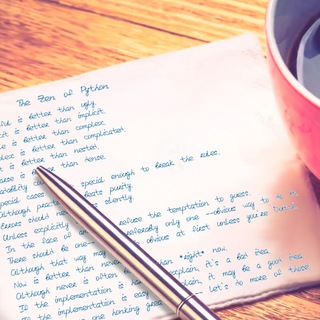 The Zen of Python
ful is better than ugly.
cit is better than implicit.
is better than complex.
plex is better than complicated.
is better than nested.
is better than dense.
special enough to break the rules.
Although practi beats purity.
Errors should ne silently.
Unless explicitly
In the face of am refuse the temptation to guess.
There should be one-- preferably only one --obvious way to do it.
Although that way may obvious at first unless you're Dutch.
Now is better than never.
Although never is often than *right* now.
If the implementation is hard explain, it's a bad idea.
If the implementation is easy explain, it may be a good idea.
are one honking great -- let's do more of those